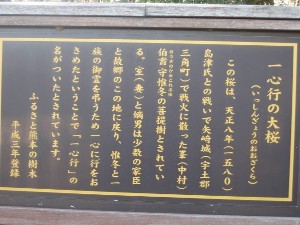 一心行の大桜
（いっしんぎょうのおおざくら）
この桜は、天正八年（一五八〇）
島津氏との戦いで矢崎城（宇土郡
三角町）で戦火に散った峯（中村）
伯耆守惟冬の菩提樹とされてい
る。室（妻）と嫡男は少数の家臣
と故郷のこの地に戻り、惟冬と一
族の御霊を弔うため一心に行をお
さめたということで「一心行」の
名がついたとされています。
ふるさと熊本の樹木
平成三年登録